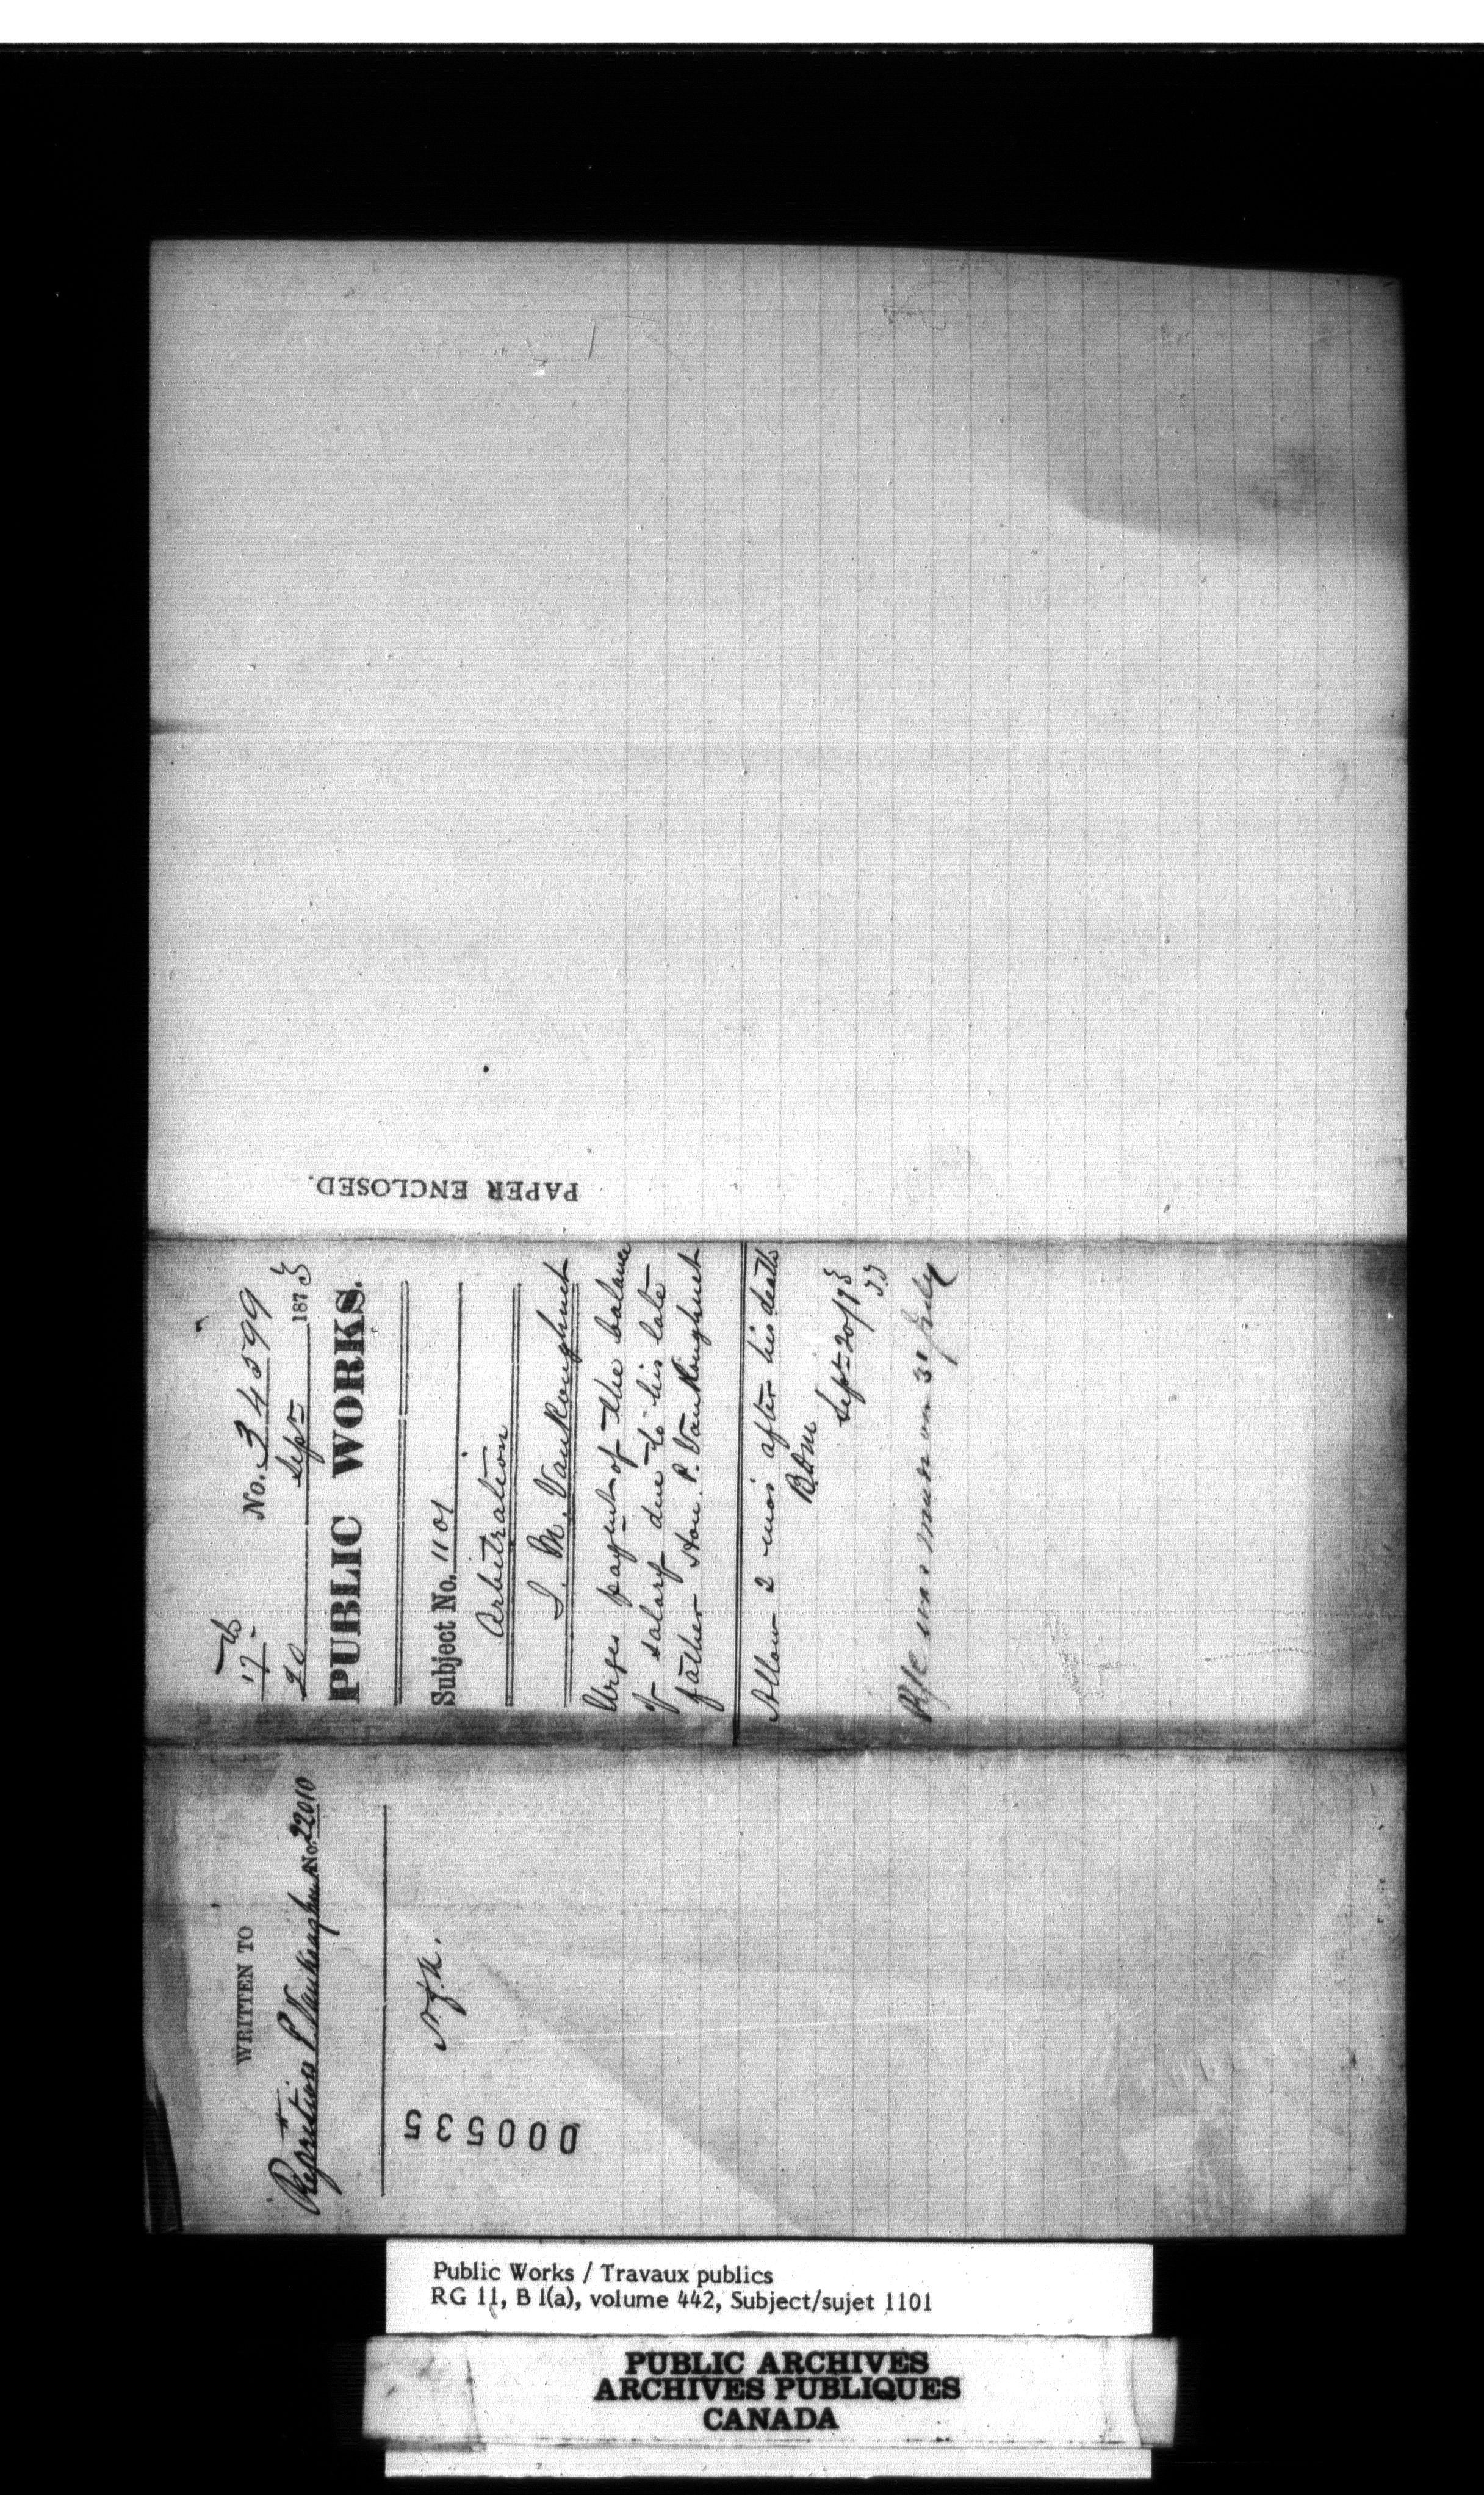 PAPER ENCLOSED.
17
20 Sept 1873
No. 34599
PUBLIC WORKS.
Subject No. 1101
Arbitration
S. M. VanKoughnet
Urges paym't of the balance
of salary due to his late
father Hon. P. VanKoughnet
Allow 2 mos after his death
Sept 20/73
WRITTEN TO
P. VanKoughnet No. 22010
000535
Public Works / Travaux publics
RG 11, B 1(a), volume 442, Subject/sujet 1101
PUBLIC ARCHIVES
ARCHIVES PUBLIQUES
CANADA